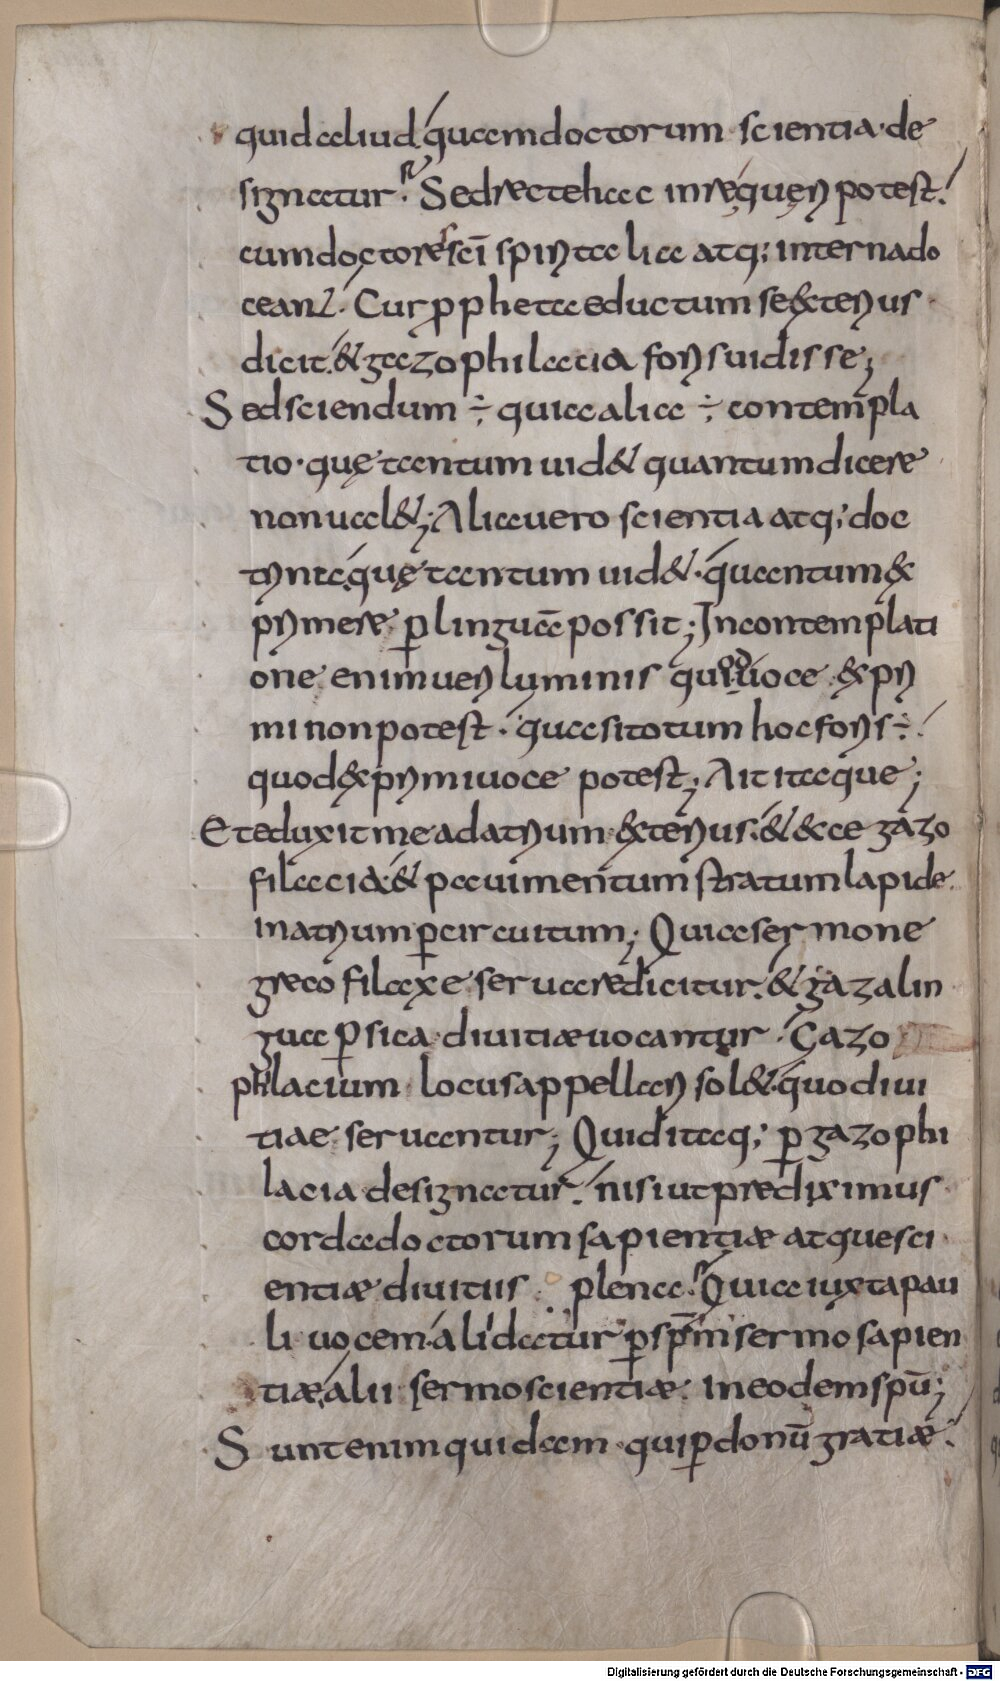 quid aliud quam doctorum scientia de
signatur. Sed recte hac in re queri potest.
cum doctores sci spiritalia atq; interna do
ceant. Cur ꝓpheta eductum se exterius
dicit. & gazophilacia foris uidisse;
Sed sciendum ÷; quia alia ÷; contempla
tio. quę tantum uid& quantum dicere
non ual&; Alia uero scientia atq; doc
trina. quę tantum uid&. quantum ex
primere ꝑ linguā possit; In contemplati
one enim ueri luminis quod uoce expri
mi non potest. quasi totum hoc foris ÷.
quod exprimi uoce potest; Ait itaque;
Et eduxit me ad atrium exterius. & ecce gazo
filacia. & pauimentum stratum lapide
in atrium ꝑ circuitum; Quia sermone
greco filaxe seruare dicitur. & gaza lin
gua ꝑsica diuitiæ uocantur. Gazo
philacium locus appellari sol&. quo diui
tiae seruantur; Quid itaq; ꝑ gazophi
lacia designatur. nisi ut prediximus
corda doctorum sapientiæ atque sci
entiæ diuitiis plena. Quia iuxta pau
li uocem. alii datur ꝑ spm sermo sapien
tiæ. alii sermo scientiæ. in eodem spū;
Sunt enim quidam qui ꝑ donū gratiæ.
Digitalisierung gefördert durch die Deutsche Forschungsgemeinschaft - DFG